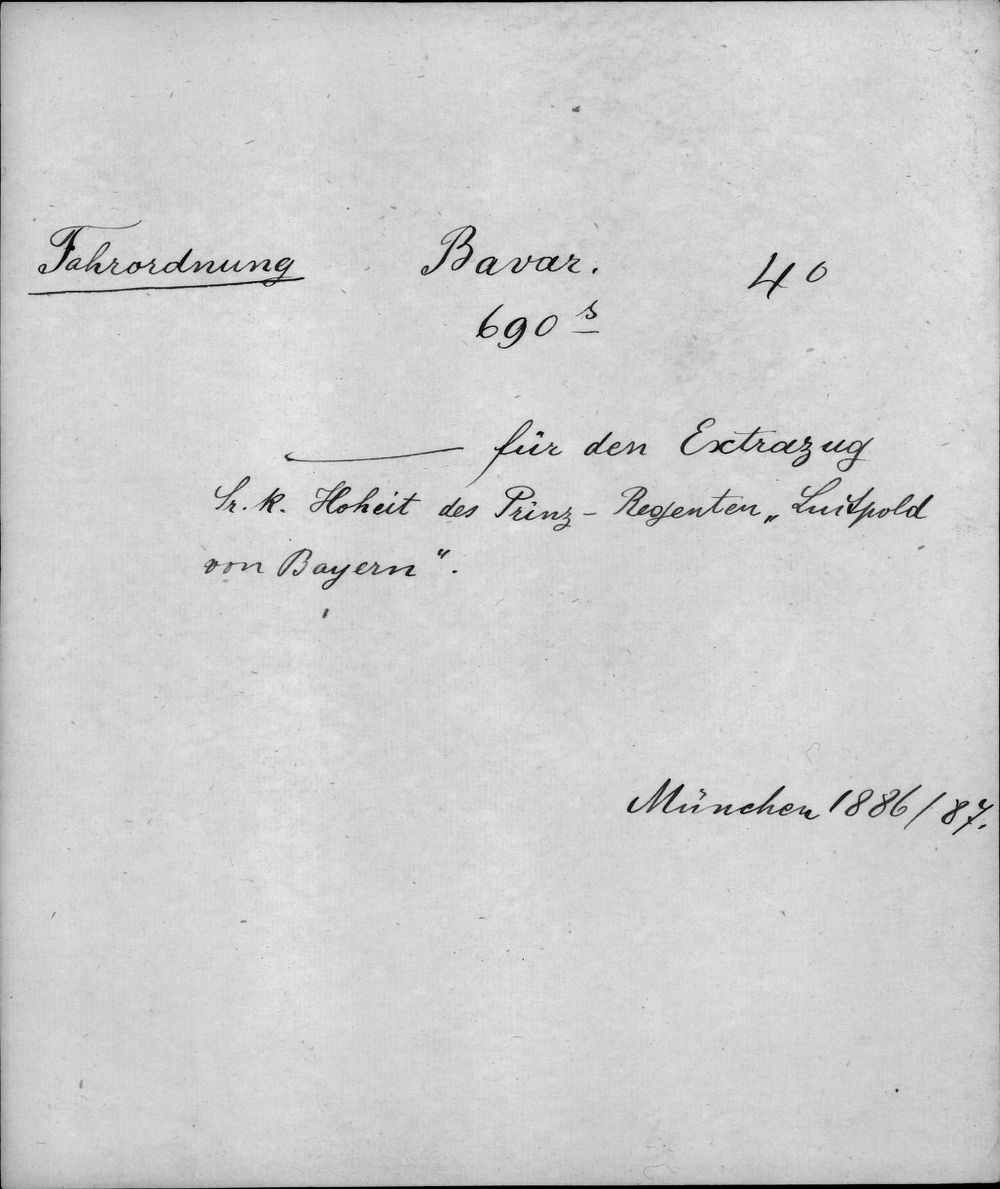 Fahrordnung Bavar. 4°
690 s
— für den Extrazug
Sr. k. Hoheit des Prinz-Regenten „Luitpold
von Bayern“.
München 1886/87.